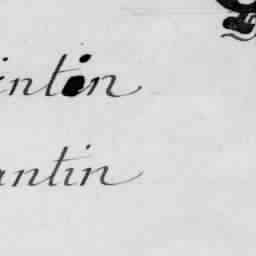 intin
antin